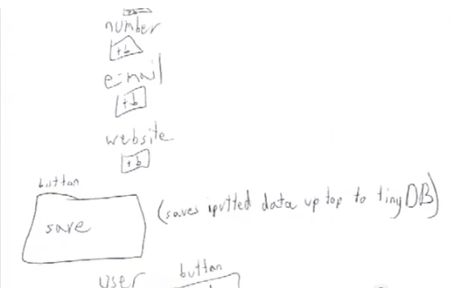 number
tb
e-mail
tb
website
tb
button
save
(saves inputted data up top to tiny DB)
user
button